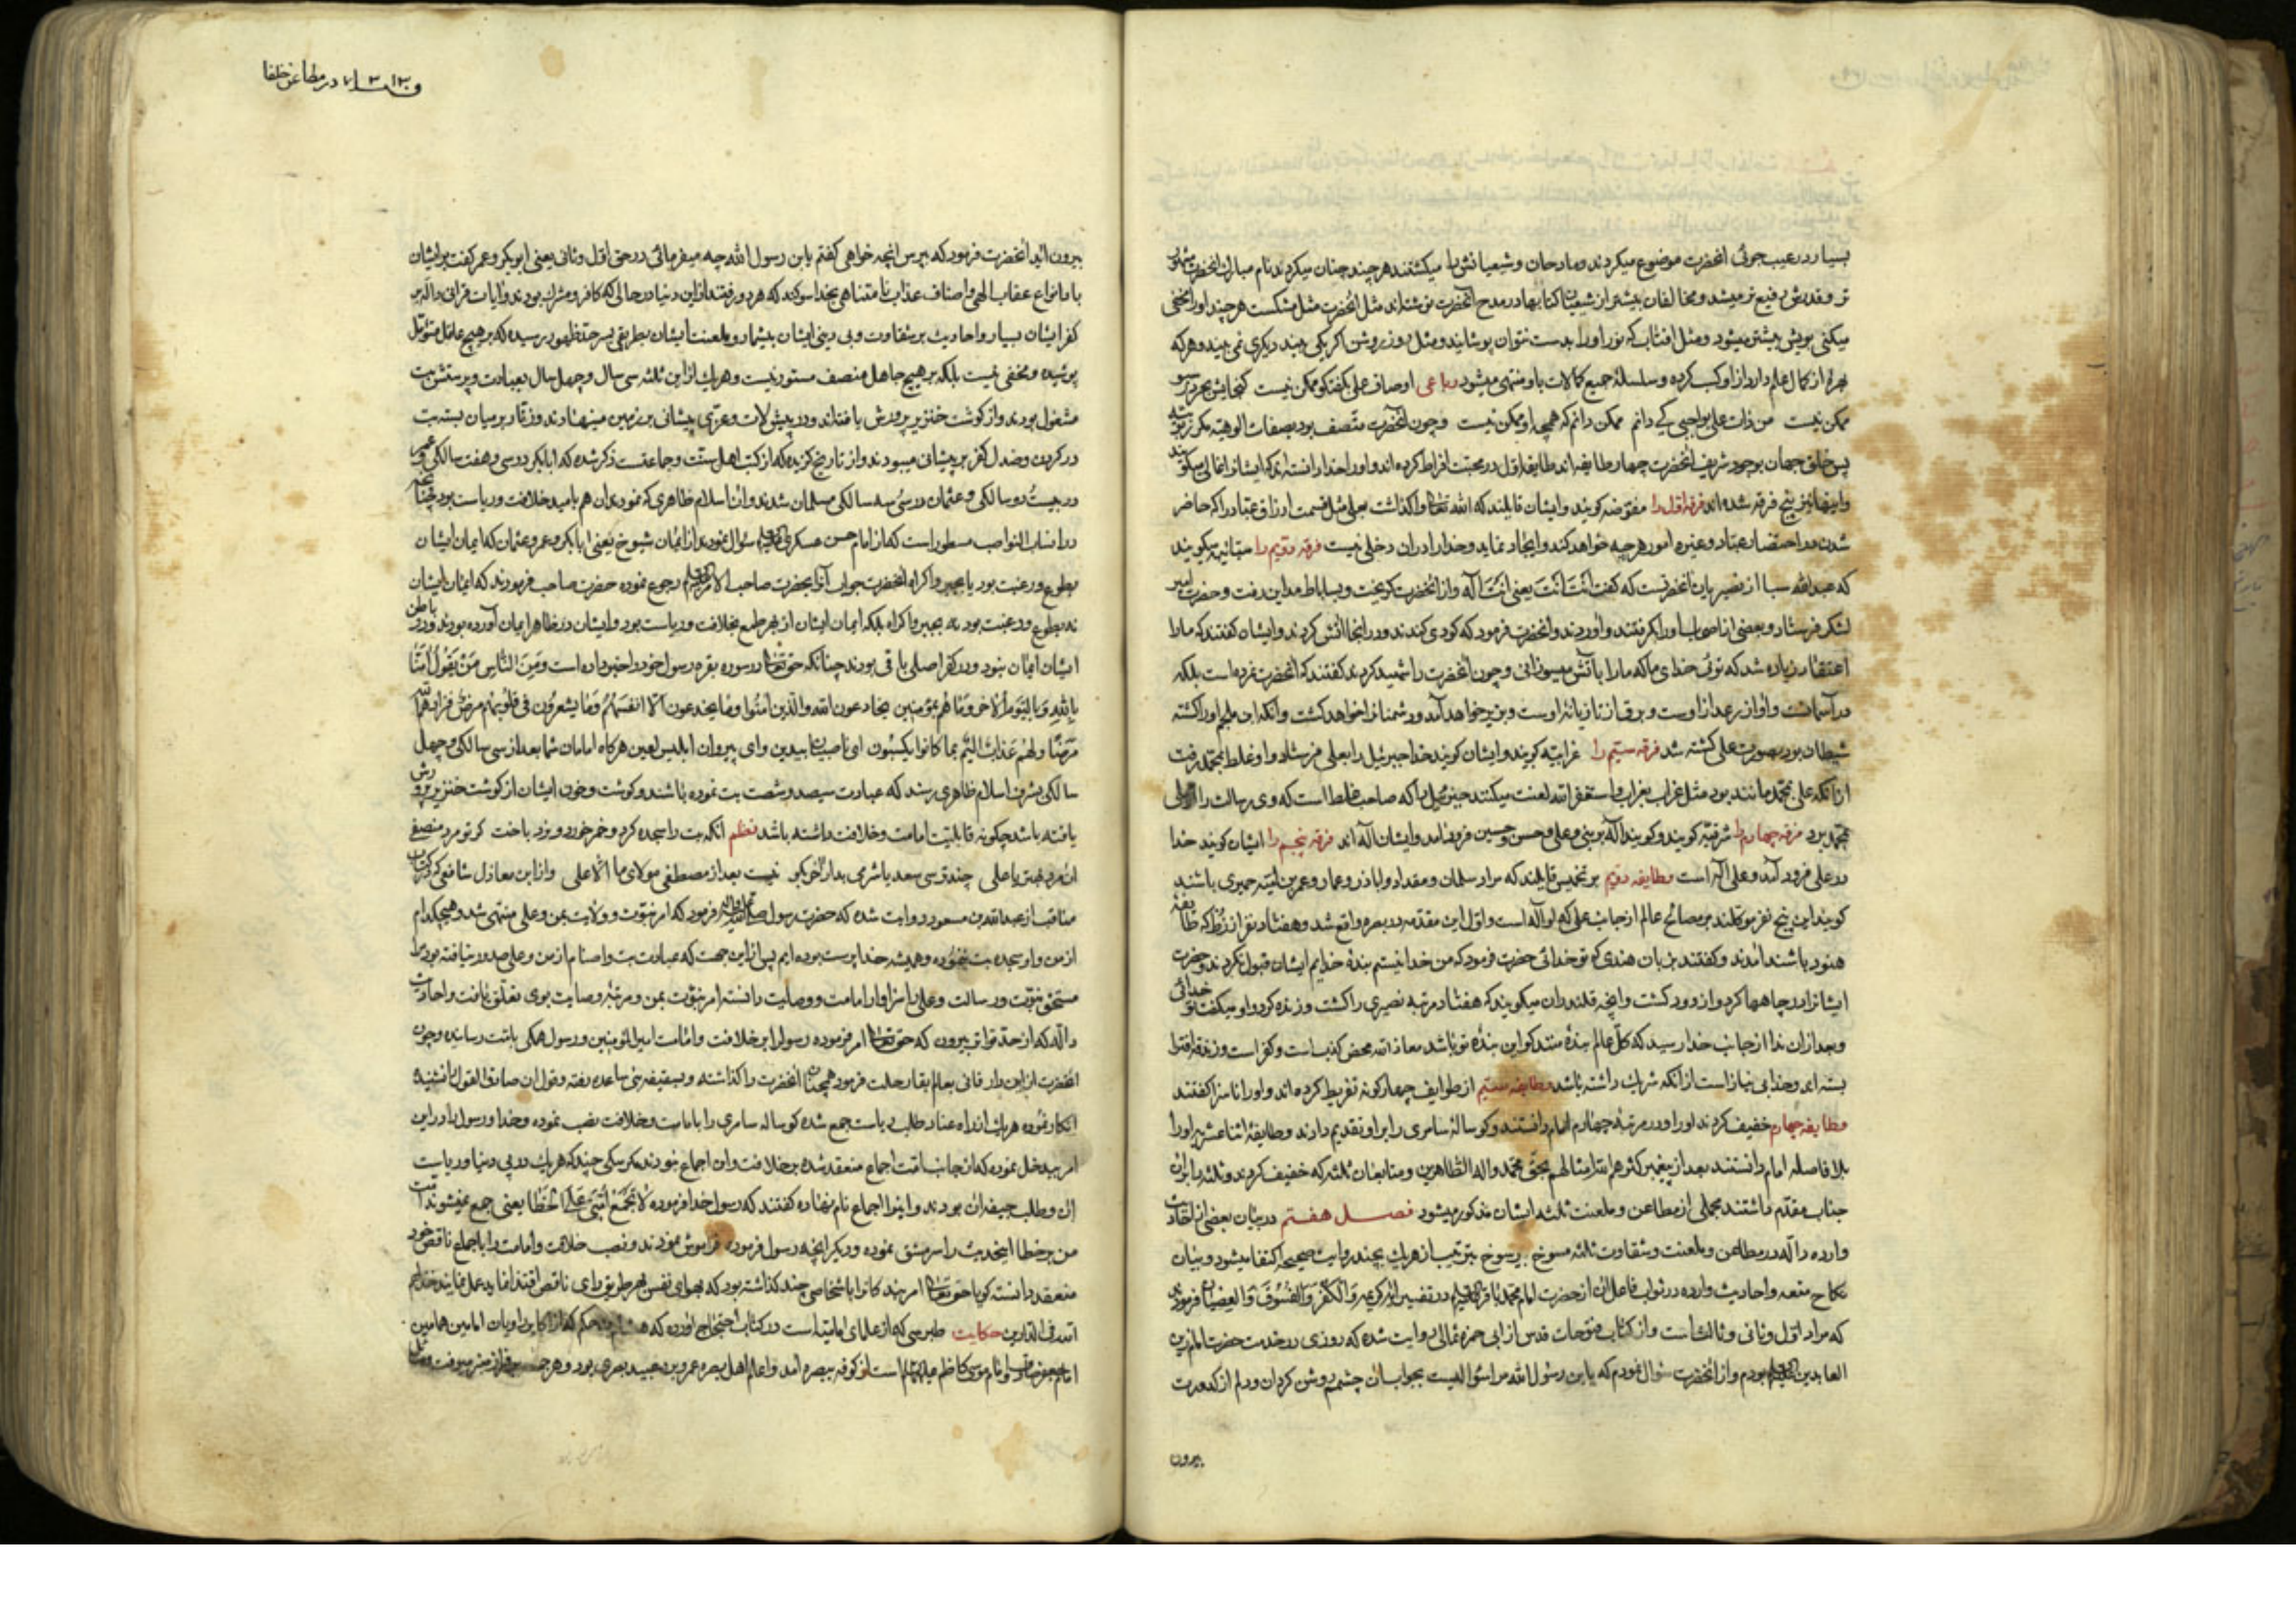 بسیار در عیب جوئی انحضرت موضوع میکردند و مادحان و شیعیانش را میکشتند هر چند چنان میکردند نام مبارک انحضرت
تر و قدرش رفیع تر میشد و مخالفان بیشتر از شیعیان کتابها در مدح آنحضرت نوشته‌اند مثل انحضرت مثل مشکست هر چند او را مخفی
میکنی بویش بیشتر میشود و مثل افتاب که نور او را بدست نتوان پوشانید و مثل روز روشن اگر یکی بیند دیگری نمی بیند و هر که
بهره از کمال علم دارد از او کسب کرده و سلسلهٔ جمیع کمالات باو منتهی میشود رباعی اوصاف علی بگفتکو ممکن نیست کنجایش بحر در سبو
ممکن نیست من ذات علی بواجبی کی دانم ممکن دانم که همچو او ممکن نیست و چون آنحضرت متصف بود بصفات الوهیة
پس خلق جهان بوجود شریف انحضرت چهار طایفه اند طایفه اول در محبت افراط کرده اند و او را خدا دانسته اند که ایشانرا غالی میکو
و اینها نیز پنج فرقه شده اند فرقه اول را مفوّضه کویند و ایشان قایلند که الله تعالی واکذاشت بعلی مثل قسمت ارزاق عباد را که حاضر
شدن در احتضار عباد و غیره امور هر چه خواهد کند و ایجاد نماید و خدا را در ان دخلی نیست فرقه دویّم را سبائیه میکویند
که عبدالله سبا از نصیریان انحضرتست که گفت اَنْتَ اَنْتَ یعنی اَنْتَ اله و از انحضرت کریخت و بساباط مداین رفت و حضرت امیر
لشکر فرستاد و بعضی از اصحاب او را گرفتند و آوردند و انحضرت فرمود که کودی کندند و در انجا اتش کردند و ایشان گفتند که ما را
اعتقاد زیاده شد که توئی خدای ما که ما را باتش میسوزانی و چون انحضرت را شهید کردند گفتند که انحضرت نمرده است بلکه
در آسمانست و اواز رعد از اوست و برق از تازیانهٔ اوست و بزیر خواهد آمد و دشمنانرا خواهد کشت و انکه ابن ملجم او را کشته
شیطان بود بصورت علی کشته شد فرقه سیّم را غرابیّه کویند و ایشان کویند خدا جبرئیل را بعلی فرستاد و او غلط بمحمد رفت
از انکه علی بمحمد مانند بود مثل غراب بغراب و استغفر الله لعنت میکنند جبرئیل را که صاحب غلط است که وی رسالت را از علی
بمحمد برد فرقه چهارم را شرقیّه کویند و کویند اله بر نبی و علی و حسن و حسین فرود آمد و ایشان اله اند فرقه پنجم را ایشان کویند خدا
در علی فرود آمد و علی اله است و طایفه دویّم بر تخمیس قایلند که مراد سلمان و مقداد و اباذر و عمار و عمر بن امیّه ضمیری باشند
کویند این پنج نفر موکلند بر مصالح عالم از جانب علی که او اله است و اول این مقدّمه در بصره واقع شد و هفتاد نفر از زُطّ که طایفه
هنود باشند امدند و گفتند بزبان هندی که تو خدائی حضرت فرمود که من خدا نیستم بندهٔ خدایم ایشان قبول نکردند و حضرت
ایشانرا در چاهها کرد و از دود کشت و انچه قلندران میکویند که هفتاد مرتبه نصیری را کشت و زنده کرد و او میگفت تو خدائی
و بعد از ان ندا از جانب خدا رسید که کل عالم بندهٔ منند کو این بندهٔ تو باشد معاذ الله محض کذبست و کفر است و زندقه افترا
بسته اند و خدا بی نیاز است از انکه شریک داشته باشد و طایفه سیّم از طوایف چهارکونه تفریط کرده اند و او را ناسزا گفتند
و طایفه چهارم تخفیف کردند او را و در مرتبهٔ چهارم امام دانستند و کوسالهٔ سامری را بر او تقدیم دادند و طایفهٔ اثنا عشریه او را
بلا فاصله امام دانستند بعد از پیغمبر کثر هم الله امثالهم بحق محمد و اله الطاهرین و متابعان ثلثه که تخفیف کردند و ثلثه را بر ان
جناب مقدّم داشتند مجملی از مطاعن و ملعنت ثلثه ایشان مذکور میشود فصل هفتم در بیان بعضی از احادیث
وارده دالّه در مطاعن و ملعنت و شقاوت ثلثه مسوخ بترتیب از هر یک بچند روایت صحیحه اکتفا میشود و بیان
نکاح متعه و احادیث وارده در ثواب فاعل ان از حضرت امام محمد باقر علیه‌السلم در تفسیر ایهٔ کریمه وَالْکُفْرَ وَالْفُسُوقَ وَالْعِصْیٰانَ فرموده
که مراد اول و ثانی و ثالث است و از کتاب فتوحات قدس از ابی حمزه ثمالی روایت شده که روزی در خدمت حضرت امام زین
العابدین علیه‌السلم بودم و از انحضرت سؤال نمودم که یابن رسول الله مرا سؤالیست بجواب ان چشمم روشن کردان و دلم از کدورت
بیرون
در مطاعن خلفا
بیرون ائید انحضرت فرمود که بپرس انچه خواهی گفتم یابن رسول الله چه میفرمائی در حق اول و ثانی یعنی ابوبکر و عمر گفت بر ایشان
باد انواع عقاب الهی و اصناف عذاب نامتناهی بخدا سوکند که هر دو رفتند از این دنیا در حالی که کافر و مشرک بودند و ایات قرانی داله بر
کفر ایشان بسیار و احادیث بر شقاوت و بی دینی ایشان بیشمار و ملعنت ایشان بطریقی بسرحد ظهور رسیده که بر هیچ عاقل متوئل
پوشیده و مخفی نیست بلکه بر هیچ جاهل منصف مستور نیست و هر یک از این ثلثه سی سال و چهل سال بعبادت و پرستش بت
مشغول بودند و از کوشت خنزیر پرورش یافته‌اند و در پیش لات و عزّی پیشانی بر زمین مینهادند و زنار بر میان بسته بت
در گردن و صندل کفر بر پیشانی میسودند و از تاریخ گزیده که از کتب اهل سنت و جماعتست ذکر شده که ابابکر در سی و هفت سالکی و عمر
در بیست و دو سالکی و عثمان در سی و سه سالکی مسلمان شدند و ان اسلام ظاهری که نمودند ان هم بامید خلافت و ریاست بود چنانچه
در انساب النواصب مسطور است که از امام حسن عسکری علیه‌السلم سؤال نمودند از ایمان شیوخ یعنی ابابکر و عمر و عثمان که ایمان ایشان
بطوع و رغبت بود یا بجبر و اکراه انحضرت جواب آنرا بحضرت صاحب الامر علیه‌السلم رجوع نموده حضرت صاحب فرمودند که ایمان ایشان
نه بطوع و رغبت بود نه بجبر و اکراه بلکه ایمان ایشان از بهر طمع بخلافت و ریاست بود و ایشان در ظاهر ایمان آورده بودند و در باطن
ایشان ایمان نبود و در کفر اصلی باقی بودند چنانکه حق تعالی در سوره بقره رسول خود را خبر داده است وَمِنَ النّٰاسِ مَنْ یَقُولُ اٰمَنّٰا
بِاللّٰهِ وَبِالْیَوْمِ الْاٰخِرِ وَمٰا هُمْ بِمُؤْمِنِینَ یخادعون الله والّذین اٰمَنُوا وَمٰا یخدعون اِلّٰا اَنْفُسَهُمْ وَمٰا یَشْعُرُون فی قُلُوبِهِمْ مَرَضٌ فزادهم الله
مَرَضًا ولهُمْ عَذابٌ الیمٌ بما کانوا یکسبون ای ناصبیان بیدین و ای پیروان ابلیس لعین هرکاه امامان شما بعد از سی سالکی و چهل
سالکی بشرف اسلام ظاهری رسند که عبادت سیصد و شصت بت نموده باشند و کوشت و خون ایشان از کوشت خنزیر پرورش
یافته باشد چکونه قابلیّت امامت و خلافت داشته باشد نظم انکه بت را سجده کرد و خمر خورد و نرد باخت گر تو مرد منصفی
ان مرد بهتر یا علی چند ترسی سعدیا شرمی بدار اخر بگو نیست بعد از مصطفی مولای ما الّا علی و از ابن مغازل شافعی که در کتاب
مناقب از عبدالله بن مسعود روایت شده که حضرت رسول صلی الله علیه واله فرمود که امر نبوّت و ولایت بمن و علی منتهی شد و هیچکدام
از من و او سجده بت ننموده و همیشه خدا پرست بوده ایم پس از این جهت که عبادت بت و اصنام از من و علی صدور نیافته بود مرا
مستحق نبوّت و رسالت و علی را سزاوار امامت و وصایت دانسته امر نبوّت بمن و مرتبهٔ وصایت بوی تعلّق یافت و احادیث
دالّه که از حد تواتر بیرون که حق تعالی امر فرموده رسول را بر خلافت و امامت امیرالمؤمنین و رسول همکی بامت رسانیده و چون
انحضرت از این دار فانی بعالم بقا رحلت فرمود همچنان انحضرت را گذاشته و بسقیفه بنی ساعده رفته و قول ان صادق القول را نشنیده
انکار نموده هر یک از راه عناد و طلب ریاست جمع شده کوساله سامری را بامامت و خلافت نصب نموده و خدا و رسول را در این
امر بیدخل نموده که از جانب امت اجماع منعقد شده بر خلافت و ان اجماع نبودند مگر سکی چند که هر یک در پی دنیا و ریاست
ان و طلب جیفه ان بودند و اینرا اجماع نام نهاده گفتند که رسول خدا فرموده لٰا تَجْتَمِعُ اُمَّتی عَلَی الْخَطٰا یعنی جمع نمیشوند امت
من بر خطا اینحدیث را سرمشق نموده و دیکر انچه رسول فرموده فراموش نمودند و نصب خلافت و امامت را باجماع ناقص خود
منعقد دانسته کویا حق تعالی امر بندکانرا باشخاصی چند گذاشته بود که بهوای نفس بهر طریق رای ناقص اقتضا نماید عمل نمایند
فی الدّارین حکایت طبرسی که از علمای امامیّه است در کتاب احتجاج اورده که هشام بن حکم که از اکابر راویان امامین همامین
امام جعفر صادق و امام موسی کاظم علیهما السلام است از کوفه ببصره امد و اعلم اهل بصره عمرو بن عبید بصری بود و هر